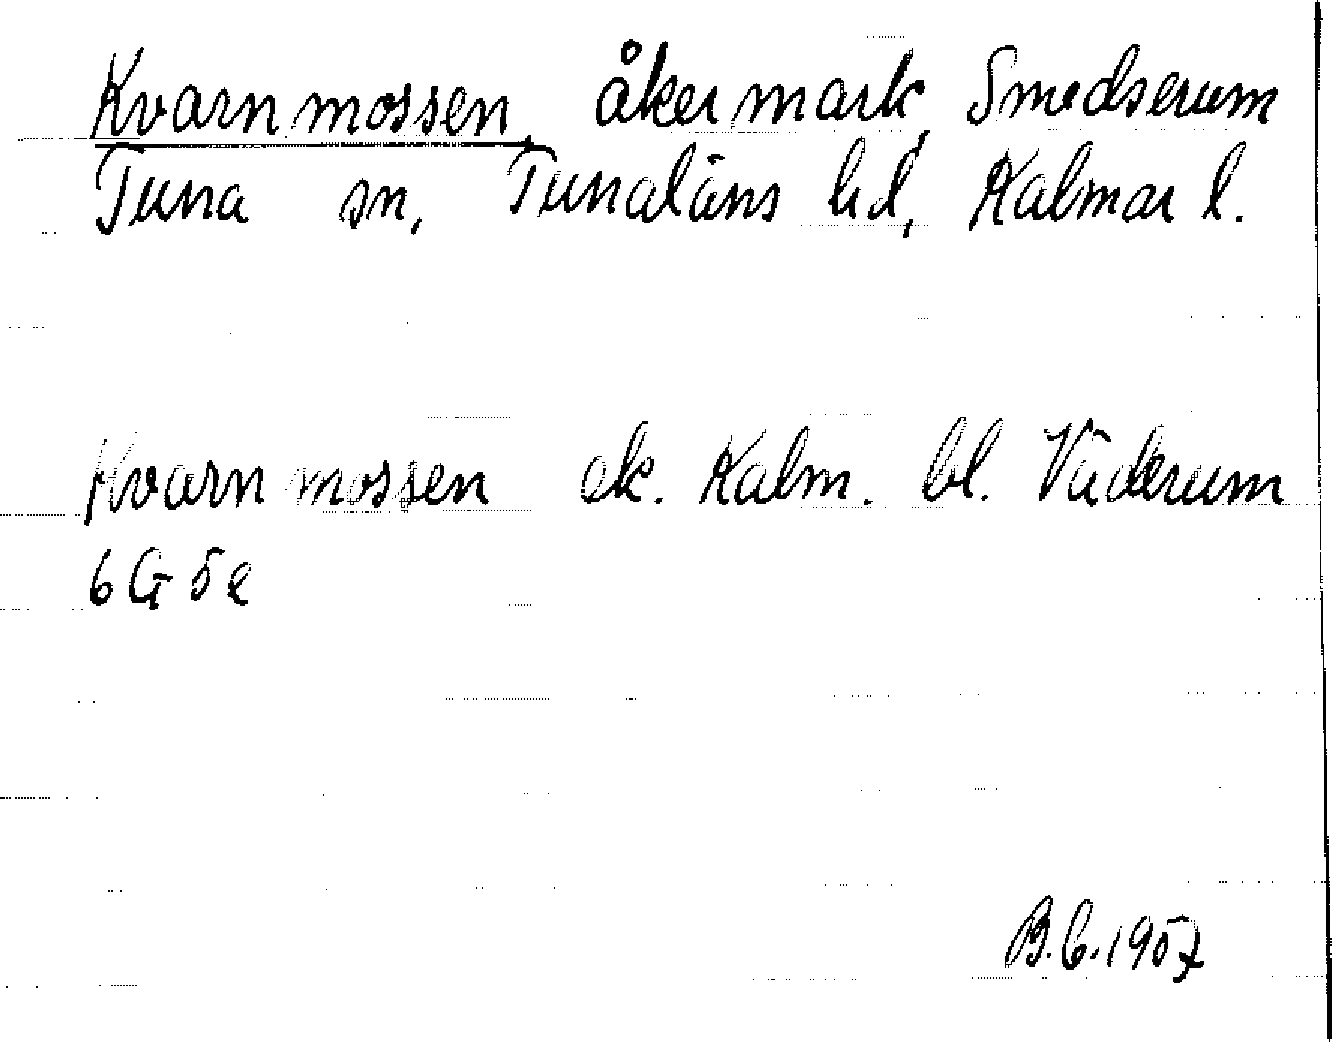 Kvarnmossen, åkermark, Smedserum
Tuna sn, Tunaläns hd, Kalmar l.
Kvarnmossen ek. Kalm. bl. Väderum
6 G 5e
B.G. 1957